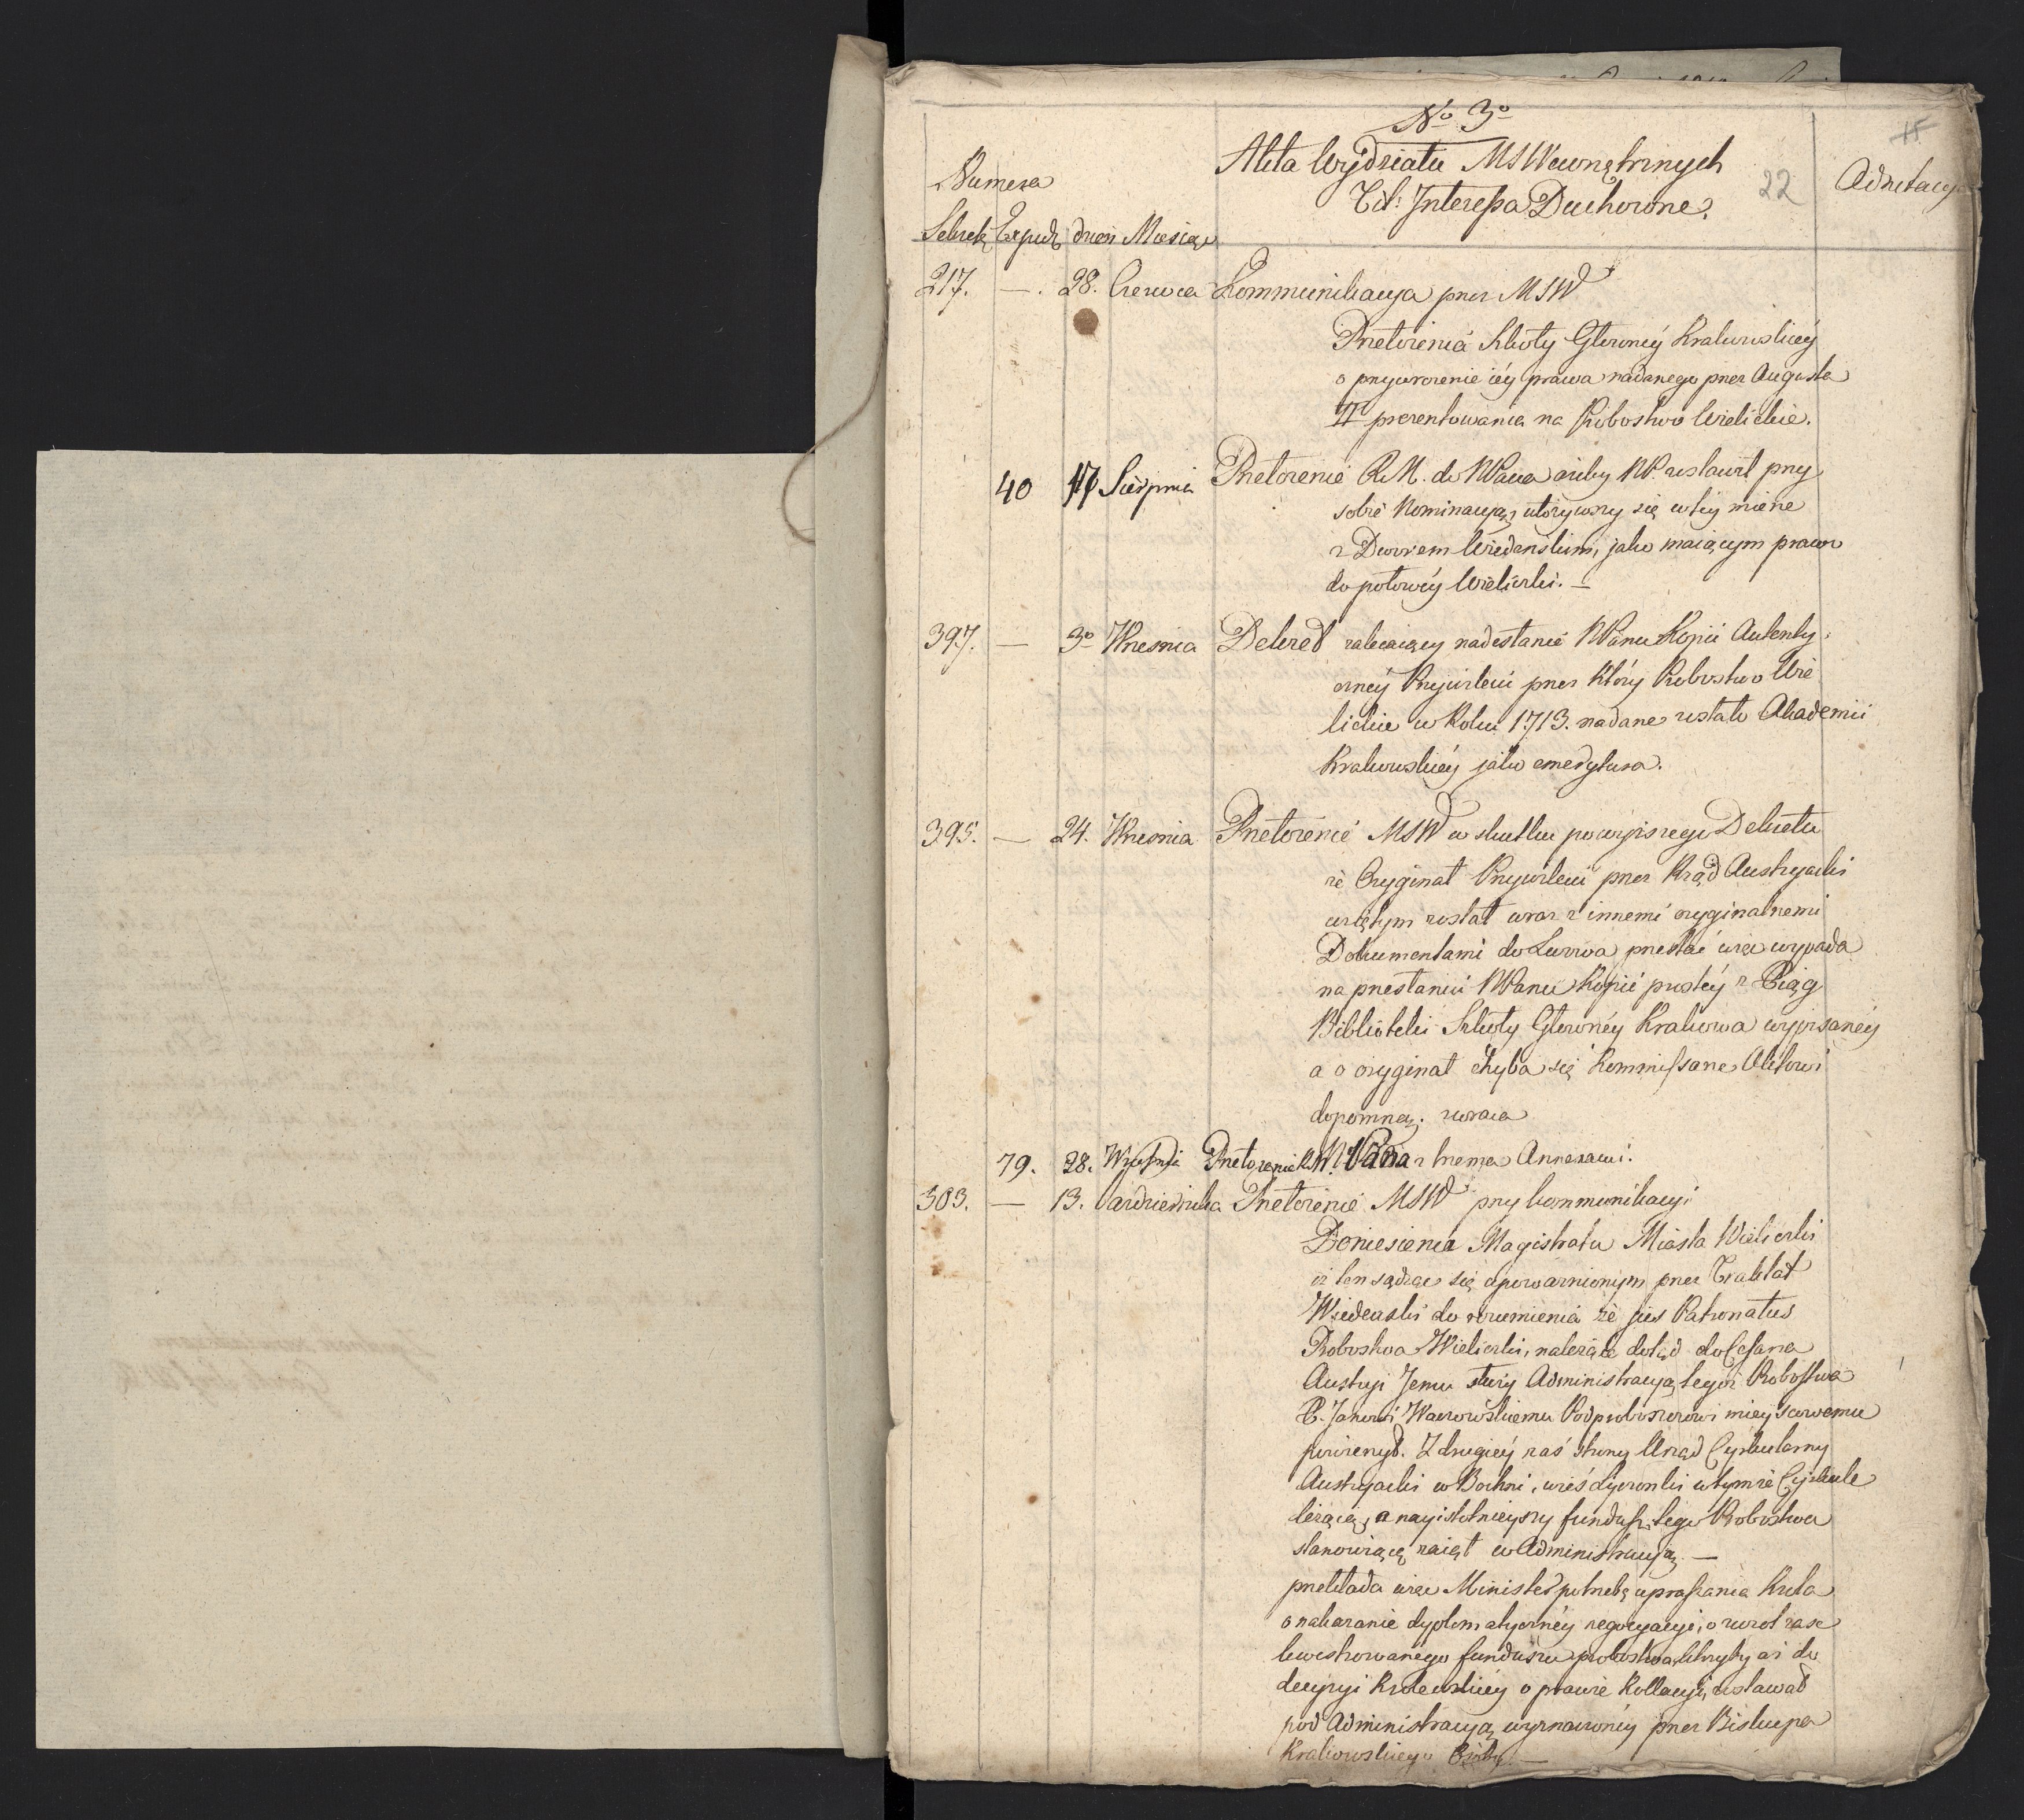 No 3o
Akta Wydziału MSWewnętrznych
Tit: Interessa Duchowne.
22
Numera
Adnotacye
Sekret Exped dzień Miesiąc
217. —. 28. Czerwca Kommunikacya przez MSW
Przełożenia Szkoły Głowney Krakowskiey
o przywrocenie iey prawa nadanego przez Augusta
II prezentowania na Probostwo Wielickie.
40 17 Sierpnia Przełożenie R.M. do NPana ażeby NP. zostawił przy
sobie Nominacyą, ułożywszy się w tey mierze
z Dworem Wiedeńskim, jako maiącym prawo
do połowy Wieliczki. —
397. — 3o Wrzesnia Dekret zalecaiący nadesłanie NPanu Kopii Autenty
czney Przywileiu przez który Probostwo Wie
lickie w Roku 1713. nadane zostało Akademii
Krakowskiey jako emerytura.
395. — 24. Wrzesnia Przełożenie MSW w skutku powyższego Dekretu
że Oryginał Przywileiu przez Rząd Austryacki
wziętym został wraz z innemi oryginalnemi
Dokumentami do Lwowa przestać więc wypada
na przesłaniu NPanu Kopii prostey z Xiąg
Biblioteki Szkoły Głowney Krakowa wypisaney
a o oryginał chyba się Kommissarze Aktowi
dopomną. zwraca
79. 28. Września Przełożenie R.M. NPana z trzema Annexami.
503. — 13. Pazdziernika Przełożenie MSW przy kommunikacyi
Doniesienia Magistratu Miasta Wieliczki
iż ten sądząc się upoważnionym przez Traktat
Wiedeński do rozumienia że jus Patronatus
Probostwa Wieliczki, należące dotąd do Cesarza
Austryi Jemu służy Administracyą tegoż Probostwa
X. Janowi Wacrowskiemu Podproboszczowi mieyscowemu
powierzył. Z drugiey zaś strony Urząd Cyrkularny
Austryacki w Bochni, wieś Lyczonki w tymże Cyrkule
leżącą, a nayistotnieyszy fundusz tego Probostwa
stanowiącą zaiął w Administracyą. —
przekłada więc Minister potrzebę upraszania Króla
o nakazanie dyplomatyczney negocyacyi, o zwrot zase
kwestrowanego funduszu probostwa, któryby aż do
decyzyi Krolewskiey o prawie Kollacyi, zostawał
pod Administracyą wyznaczoney przez Biskupa
Krakowskiego Osoby. —